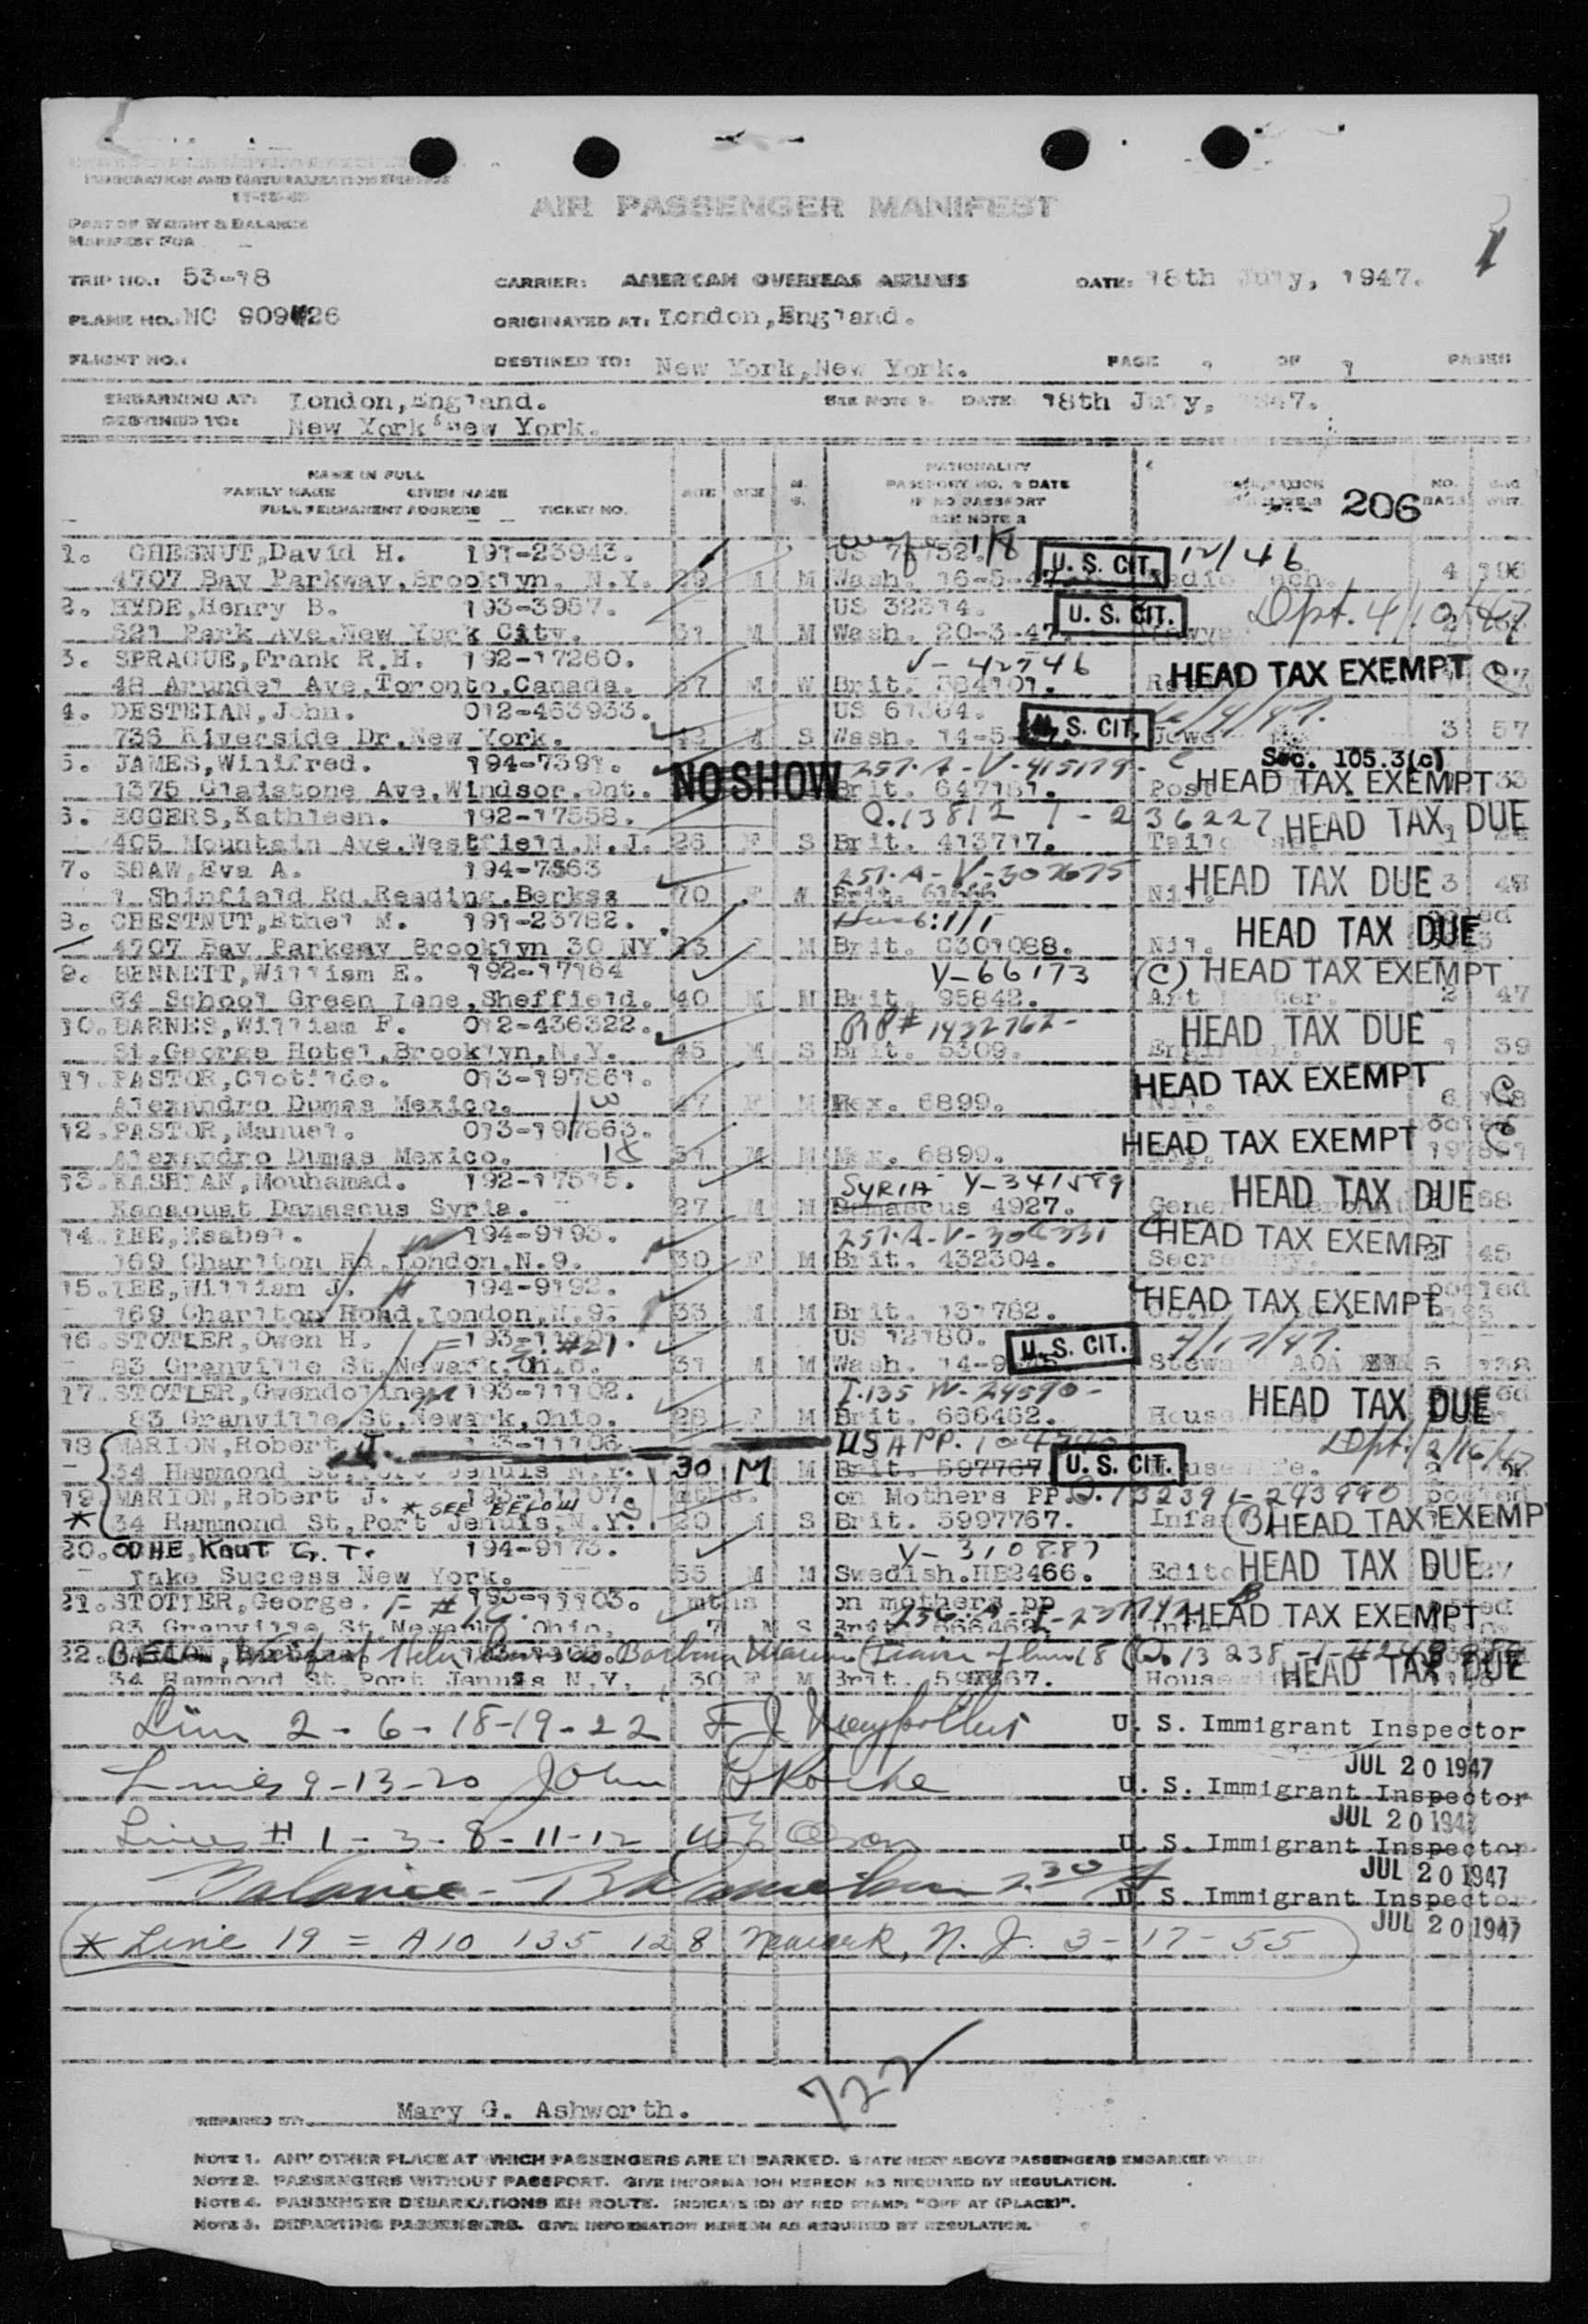 IMMIGRATION AND NATURALIZATION SERVICE
PART OF WEIGHT & BALANCE
MANIFEST FOR
AIR PASSENGER MANIFEST
1
TRIP NO.: 53-18 CARRIER: AMERICAN OVERSEAS AIRLINES DATE: 18th July, 1947.
PLANE NO. NC 90926 ORIGINATED AT: London,England.
FLIGHT NO.: DESTINED TO: New York,New York. PAGE 1 OF 1 PAGES
EMBARKING AT: London,England. SEE NOTE 1. DATE 18th July, 1947.
DESTINED TO: New York New York.
NAME IN FULL NATIONALITY
FAMILY NAME GIVEN NAME AGE SEX M. S. PASSPORT NO. & DATE NO. BAGS
FULL PERMANENT ADDRESS TICKET NO. IF NO PASSPORT 206
SEE NOTE 2
1. CHESNUT,David H. 191-23943. US 12/46
4707 Bay Parkway,Brooklyn, N.Y. 29 M M Wash. 16-5-47 U.S. CIT. 4
2. HYDE,Henry B. 193-3967. US 32314. U. S. CIT. Dpt. 4/10/47
521 Park Ave.New York City. 31 M M Wash. 20-3-47. 2
3. SPRAGUE,Frank R.H. 192-17260. V-42746 HEAD TAX EXEMPT
48 Arundel Ave,Toronto,Canada. 37 M W Brit. 384101.
4. DESTEIAN,John. 012-463933. US 61364. U. S. CIT.
736 Riverside Dr.New York. 42 M S Wash. 14-5 3 57
5. JAMES,Winifred. 194-7391. NO SHOW 257-A-V-415179- Sec. 105.3(c)
1375 Gladstone Ave.Windsor.Ont. Brit. 647181. HEAD TAX EXEMPT 33
6. EGGERS,Kathleen. 192-17558. Q.13812 1-236227 HEAD TAX DUE
405 Mountain Ave.Westfield.N.J. 26 F S Brit. 413717.
7. SHAW,Eva A. 194-7363 257-A-V-307675 HEAD TAX DUE 3 48
1 Shinfield Rd.Reading.Berks 70 F M Nil.
8. CHESTNUT,Ethel M. 191-23782. Husb:1/1 HEAD TAX DUE
4707 Bay Parkway Brooklyn 30 NY 23 F M Brit. C301088. Nil.
9. BENNETT,William E. 192-17164 V-66173 (C) HEAD TAX EXEMPT
64 School Green Lane,Sheffield. 40 M M Brit. 95842. Art 2 47
10. BARNES,William F. 012-436322. RP# 1422762- HEAD TAX DUE
St.George Hotel,Brooklyn,N.Y. 45 M S Brit. 5309. 1 39
11. PASTOR,Clotilde. 013-197861. HEAD TAX EXEMPT C
Alexandro Dumas Mexico. 47 F M Mex. 6899. Nil. 6
12. PASTOR,Manuel. 013-197863. HEAD TAX EXEMPT C
Alexandro Dumas Mexico. M M Mex. 6899. 197861
13. KASHIAN,Mouhamad. 192-17515. SYRIA V-341589 HEAD TAX DUE
Kanaouat Damascus Syria. 27 M M Damascus 4927. 58
14. LEE,Isabel. 194-9193. HEAD TAX EXEMPT
169 Charlton Rd.London,N.9. 30 F M Brit. 432304. 2 45
15. LEE,William J. 194-9192. HEAD TAX EXEMPT pooled
169 Charlton Road,London,N.9. 33 M M Brit. 131782.
16. STOTLER,Owen H. #21. US 12180. U. S. CIT. 7/17/47.
83 Granville St,Newark,Ohio. 31 M M Wash. Steward AOA 5
17. STOTLER,Gwendoline 193-11102. HEAD TAX DUE
83 Granville St,Newark,Ohio. 28 F M Brit. 666462.
18. MARION,Robert J. 193-11106 USA PP. U. S. CIT.
34 Hammond St, Port Jenuis N.Y. 30 M M Brit. 597767
19. MARION,Robert J. 193-11107 mths. on Mothers PP. pooled
* 34 Hammond St,Port Jenuis,N.Y. * SEE BELOW 20 M S Brit. 5997767. Infa (B) HEAD TAX EXEMP
20. ODHE, Knut G. T. 194-9173. V-310887 HEAD TAX DUE
Lake Success New York. 55 M M Swedish.HB2466.
21. STOTLER,George. 193-11103. mths on mothers pp B HEAD TAX EXEMPT
83 Granville St,Newark, Ohio, 7 M S Brit.
22. Helen Barbara Marion HEAD TAX DUE
34 Hammond St Port Jenuis N.Y. 30 F M Brit.
Line 2-6-18-19-22 U. S. Immigrant Inspector
JUL 20 1947
Lines 9-13-20 John U. S. Immigrant Inspector
JUL 20 1947
Lines # 1-3-8-11-12 U. S. Immigrant Inspector
JUL 20 1947
Balance - U. S. Immigrant Inspector
JUL 20 1947
* Line 19 = A10 135 128 Newark, N.J. 3-17-55
122
PREPARED BY: Mary G. Ashworth.
NOTE 1. ANY OTHER PLACE AT WHICH PASSENGERS ARE EMBARKED. STATE NEXT ABOVE PASSENGERS EMBARKED
NOTE 2. PASSENGERS WITHOUT PASSPORT. GIVE INFORMATION HEREON AS REQUIRED BY REGULATION.
NOTE 4. PASSENGER DEBARKATIONS EN ROUTE. INDICATE (D) BY RED STAMP: "OFF AT (PLACE)".
NOTE 3. DEPARTING PASSENGERS. GIVE INFORMATION HEREON AS REQUIRED BY REGULATION.